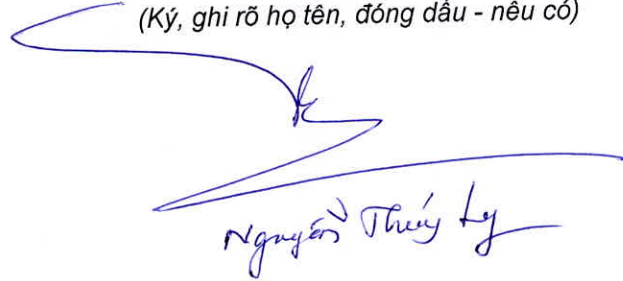 (Ký, ghi rõ họ tên, đóng dấu - nếu có)
Nguyễn Thúy Ly